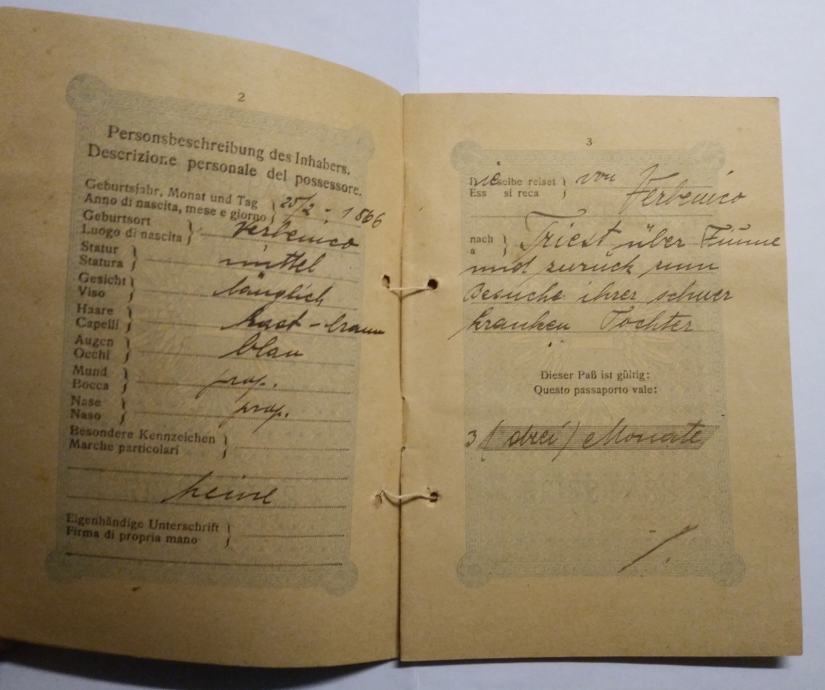 2
Personsbeschreibung des Inhabers.
Descrizione personale del possessore.
Geburtsjahr, Monat und Tag
Anno di nascita, mese e giorno } 25/2 - 1866
Geburtsort
Luogo di nascita } Verbenico
Statur
Statura } mittel
Gesicht
Viso } länglich
Haare
Capelli } kast-braun
Augen
Occhi } blau
Mund
Bocca } prop.
Nase
Naso } prop.
Besondere Kennzeichen
Marche particolari }
keine
Eigenhändige Unterschrift
Firma di propria mano }
3
Dieselbe reiset
Ess si reca } von Verbenico
nach
a } Triest über Fiume
und zurück zum
Besuche ihrer schwer
kranken Tochter
Dieser Paß ist gültig:
Questo passaporto vale:
3 (drei) Monate